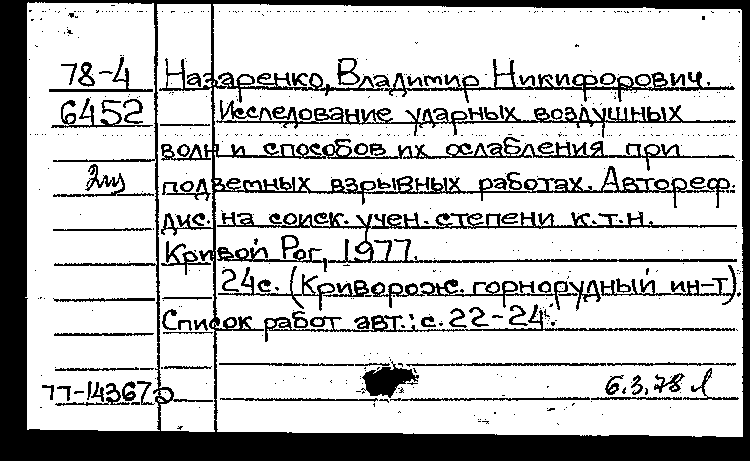 78-4 Назаренко, Владимир Никифорович.
6452 Исследование ударных воздушных
волн и способов их ослабления при
подземных взрывных работах. Автореф.
дис. на соиск. учен. степени к.т.н.
Кривой Рог, 1977.
24с. (Криворож. горнорудный ин-т).
Список работ авт.: с. 22-24.
77-14367
6.3.78